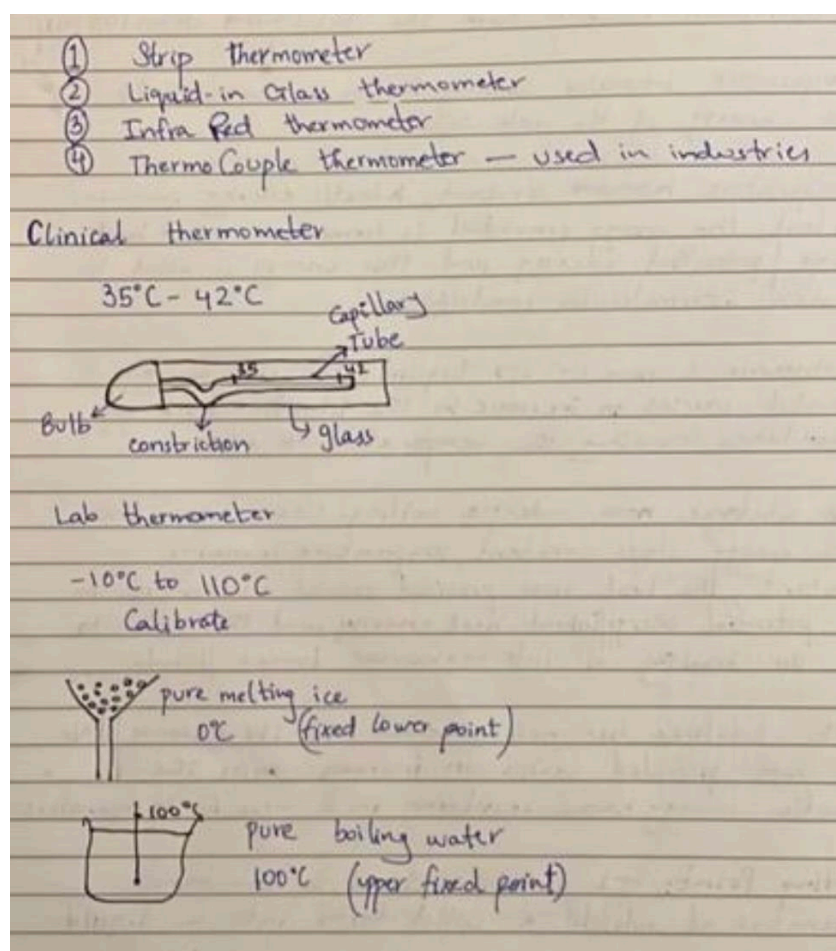 ① Strip thermometer
② Liquid-in Glass thermometer
③ Infra Red thermometer
④ Thermo Couple thermometer — used in industries
Clinical thermometer
35°C - 42°C
Capillary
Tube
35
42
Bulb
constriction
glass
Lab thermometer
-10°C to 110°C
Calibrate
pure melting ice
0°C (fixed lower point)
100°C
pure boiling water
100°C (upper fixed point)